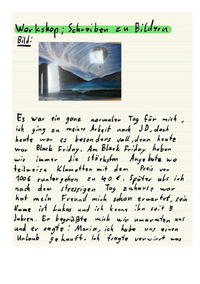 Workshop: Schreiben zu Bildern
Bild:
Es war ein ganz normaler Tag für mich,
ich ging zu meiner Arbeit nach JD, doch
heute war es besonders voll, denn heute
war Black Friday. Am Black Friday haben
wir immer die stärksten Angebote wo
teilweise Klamotten mit dem Preis von
100€ runtergehen zu 40€. Später als ich
nach dem stressigen Tag zuhause war
hat mein Freund mich schon erwartet, sein
Name ist Lukas und ich kenne ihn seit 8
Jahren. Er begrüßte mich wir umarmten uns
und er sagte: Maria, ich habe uns einen
Urlaub gekauft. Ich fragte verwirrt was